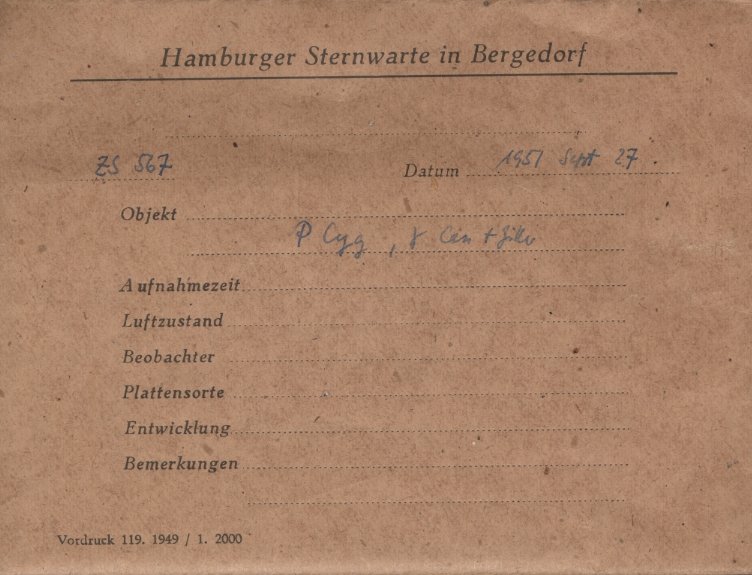 Hamburger Sternwarte in Bergedorf
ZS 567 Datum 1951 Sept 27.
Objekt
P Cyg, γ Cas +
Aufnahmezeit
Luftzustand
Beobachter
Plattensorte
Entwicklung
Bemerkungen
Vordruck 119. 1949 / 1. 2000